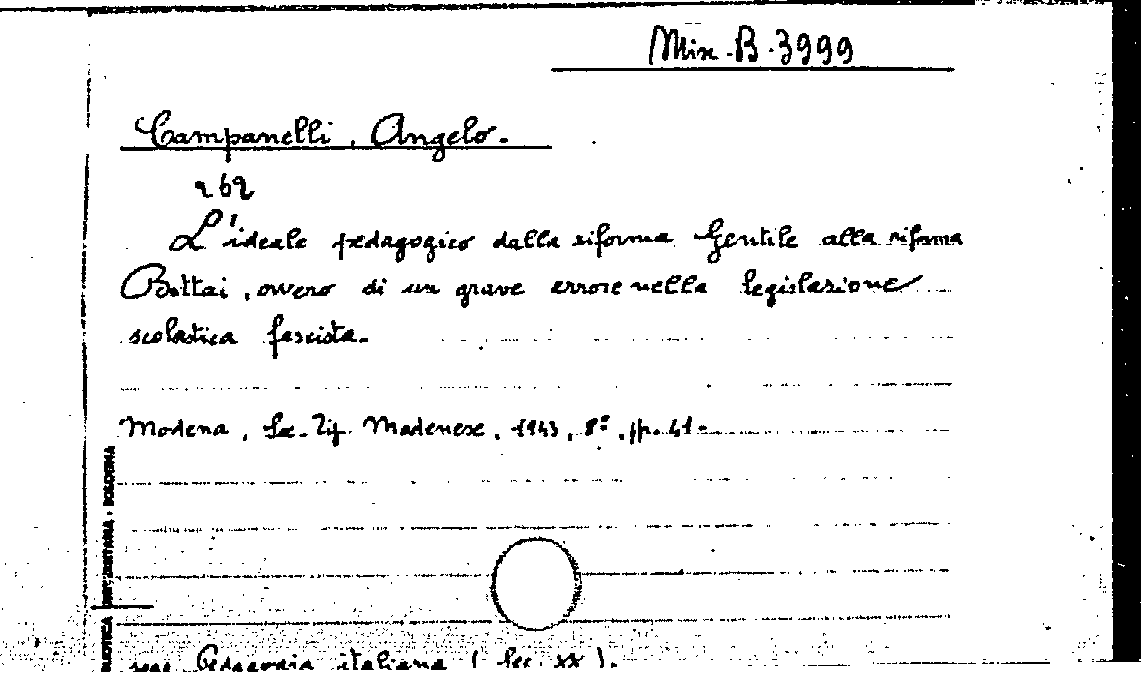 Misc. B. 3999
Campanelli, Angelo.
262
L'ideale pedagogico dalla riforma Gentile alla riforma
Bottai, ovvero di un grave errore nella legislazione
scolastica fascista.
Modena, Soc. Tip. Modenese, 1943, 8º, pp. 41.
BIBLIOTECA UNIVERSITARIA - BOLOGNA
Pedagogia italiana (Sec. XX).